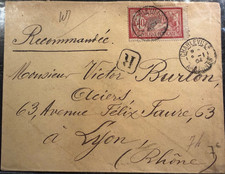 Recommandée
R
Monsieur Victor Burton,
Aciers
63, Avenue Félix Faure, 63
à Lyon,
(Rhône)